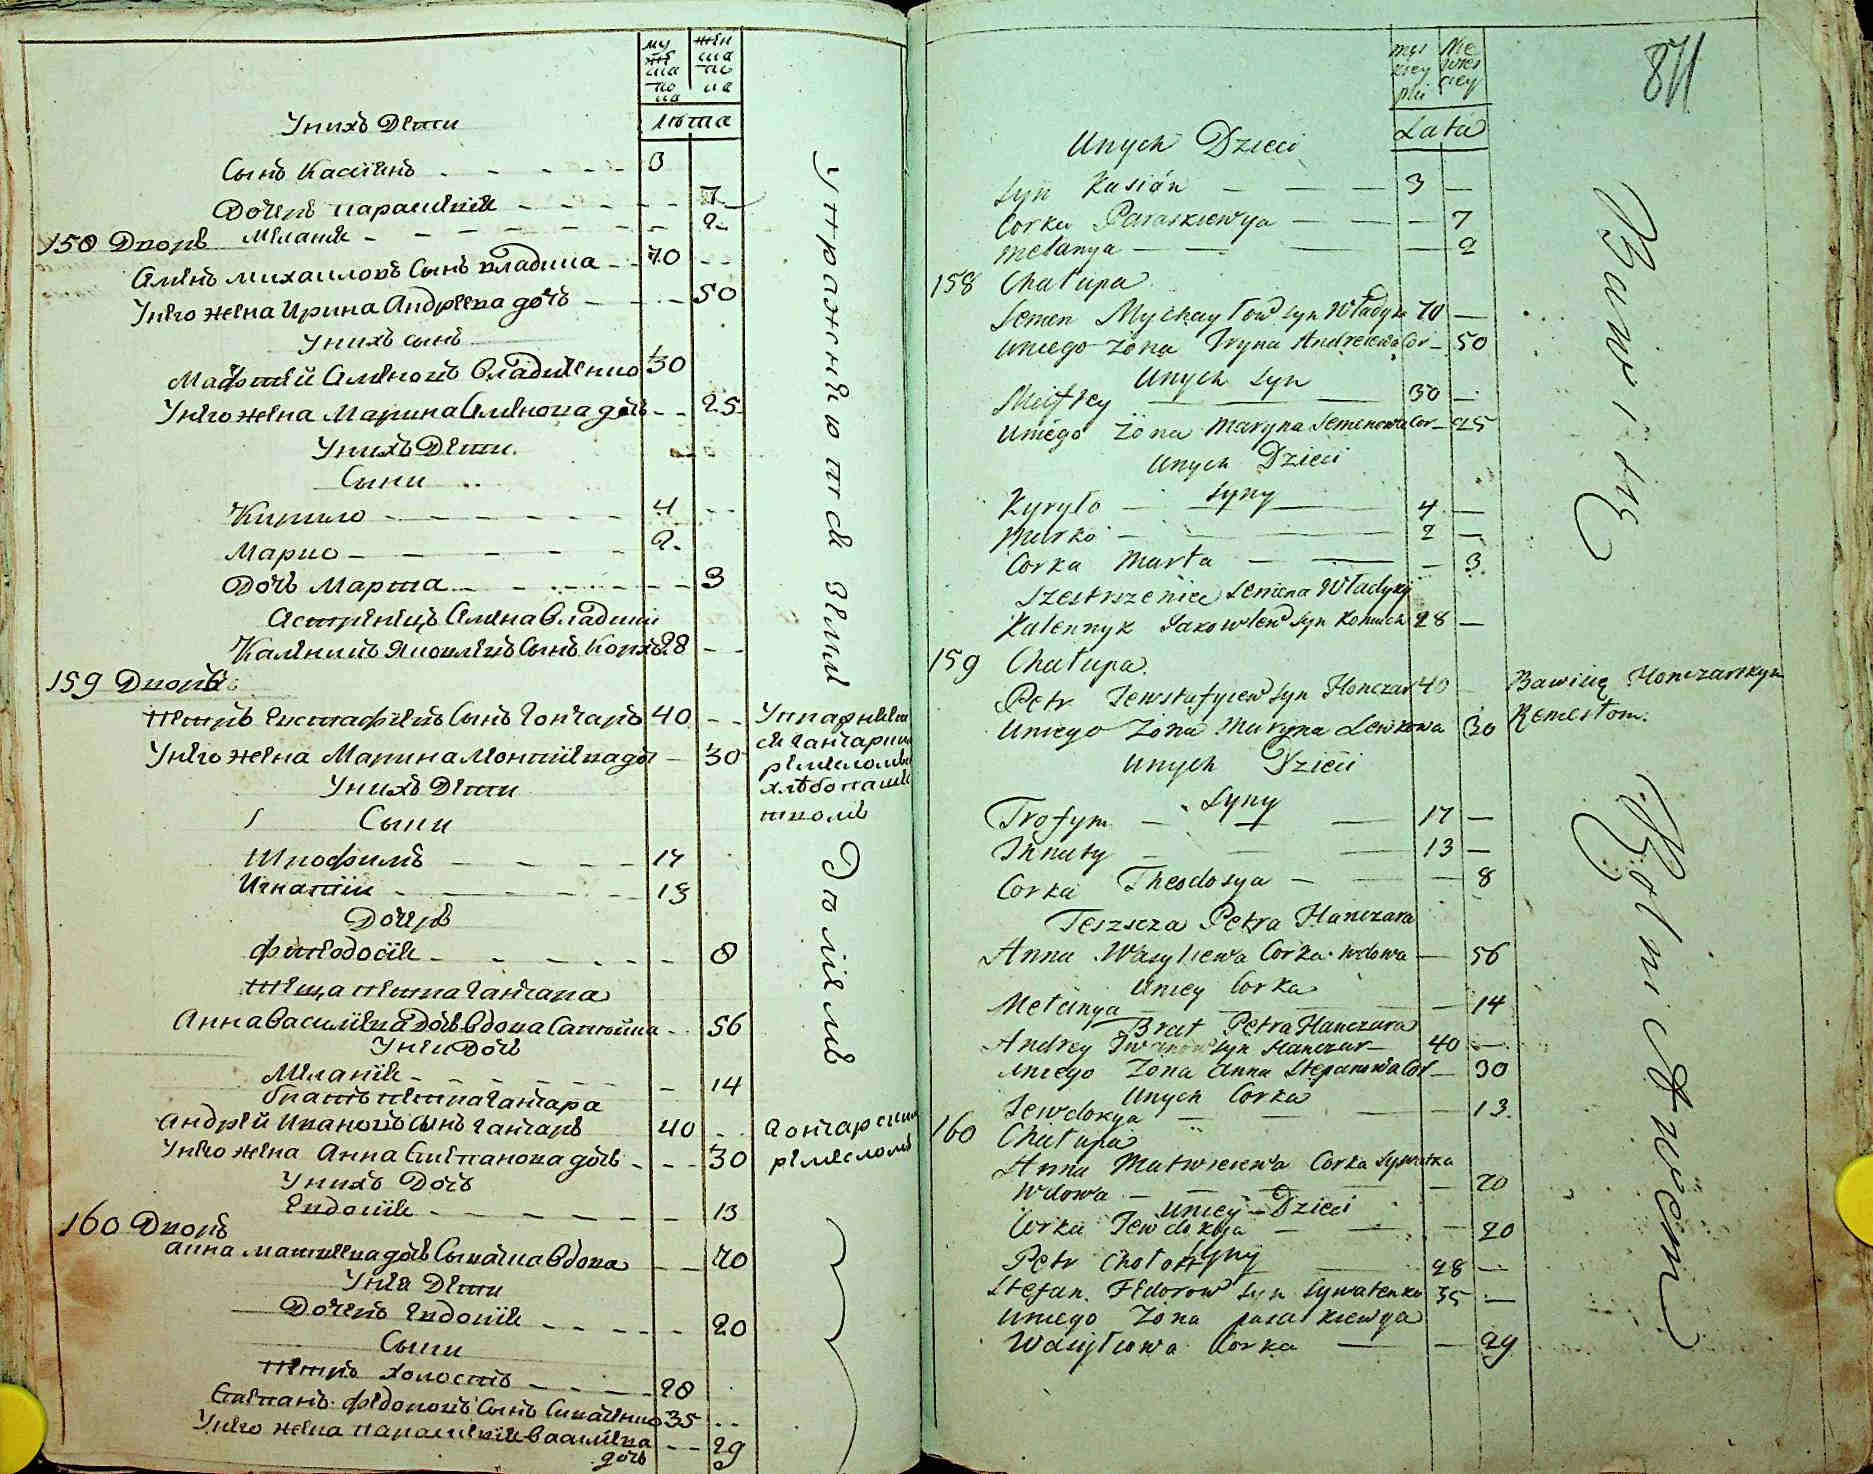 му
жес
ка
по
ла
жен
ска
по
ла
Лѣта
У нихъ Дети
Сынъ Касіянъ 3
Дочерь параскевія 7
Меланія 2
158 Дворъ
Семенъ михаиловъ Сынъ владика 70
У него жена Ирина Андреева дочь 50
У нихъ сынъ
Мафтей Семеновъ Владиченко 30
У него жена Марина Семенова дочь 25
У нихъ Дети
Сыни
Кирило 4
Марко 2
Дочь Марта 3
Сестренецъ Семена Владики
Каленикъ Яковлевъ Сынъ 28
159 Дворъ
Петръ Евстафіевъ Сынъ Гончаръ 40
У него жена Марина дочь 30
У нихъ Дети
Сыни
Трофимъ 17
Игнатій 13
Дочерь
Феодосія 8
Теща петра Гончара
Анна Василіева Дочь Вдова 56
У неи Дочь
Меланія 14
братъ петра Гончара
Андрей Ивановъ Сынъ Гончаръ 40
У него жена Анна Степанова дочь 30
У нихъ Дочь
Евдокія 13
160 Дворъ
Анна матвеева дочь Вдова 70
У неи Дети
Дочерь Евдокія 20
Сыни
Петръ холостъ 28
Степанъ Федоровъ Сынъ 35
У него жена параскевія Василіева 29
дочь
Упражняются земле Деліемъ
Упражняется
гончарнимъ
ремесломъ
хлебопаше
ствомъ
Гончарскимъ
ремесломъ
871
Lata
Unych Dzieci
Syn Kasian — 3 —
Corka Paraskiewya — 7
Melanya — 2
158 Chałupa
Semen Mychayłow Syn Władyka 70 —
Uniego Zona Iryna Andreiewa Cor — 50
Unych Syn
Miftey — 30 —
Uniego Zona Maryna Semenowa Cor — 25
Unych Dzieci
Syny
Kyryło — 4 —
Marko — 2 —
Corka Marta — 3
Szestrzeniec Semena Władyky
Kalennyk Jakowlew Syn 28 —
159 Chałupa
Petr Jewstafyiew Syn Honczar 40 — Bawi się Honczarskym
Uniego Zona Maryna Lewkowa 30 Remesłom.
Unych Dzieci
Syny
Trofym — 17 —
Ihnaty — 13 —
Corka Theodosya — 8
Teszcza Petra Hanczara
Anna Wasyliewa Corka wdowa — 56
Uniey Corka
Melanya — 14
Brat Petra Hanczara
Andrey Iwanow Syn Hanczar — 40 —
Uniego Zona Anna Stepanowa Cor — 30
Unych Corka
Jewdokya — 13
160 Chałupa
Anna Matwieiewa Corka Sywatka
Wdowa — 70
Uniey Dzieci
Corka Jewdokya — 20
Syny
Petr Chołost — 28 —
Stefan Fedorow Syn Sywatenko 35 —
Uniego Zona paraskiewya
Wasyliowa Corka — 29
Bawi się Rolnictwem